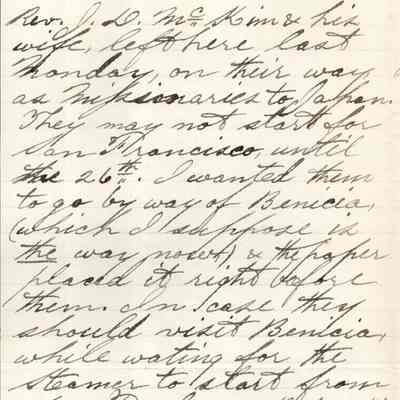 Rev. J. D. McKim & his
wife, left here last
Monday, on their way
as Missionaries to Japan.
They may not start for
San Francisco, until
the 26th. I wanted them
to go by way of Benicia,
(which I suppose is
the way now) & the paper
placed it right before
them. In case they
should visit Benicia,
while wating for the
steamer to start from